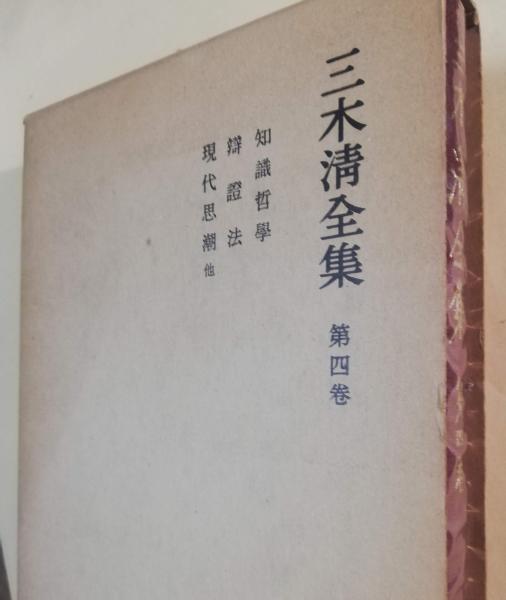 三木淸全集 第四卷
知識哲學
辯證法
現代思潮 他